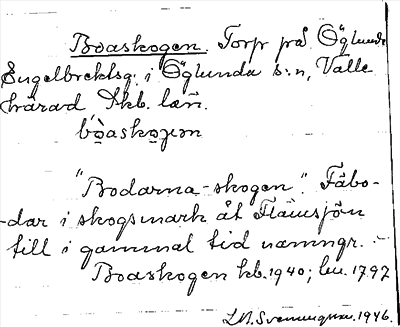 Boaskogen. Torp på Öglunda
Engelbrektsg. i Öglunda s:n, Valle
härad Skb. län.
bòaskogen
"Bodarna-skogen". Fäbo-
-dar i skogsmark åt Flämsjön
till i gammal tid nämngr. -
Boaskogen kb. 1940; lm. 1797
1946.